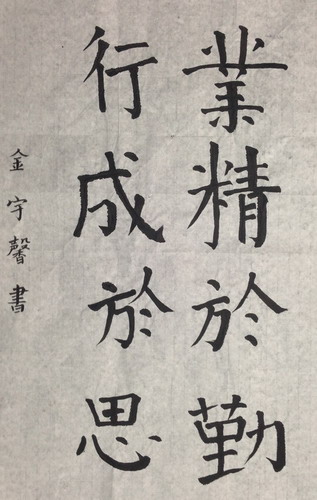 業精於勤
行成於思
金宇馨書